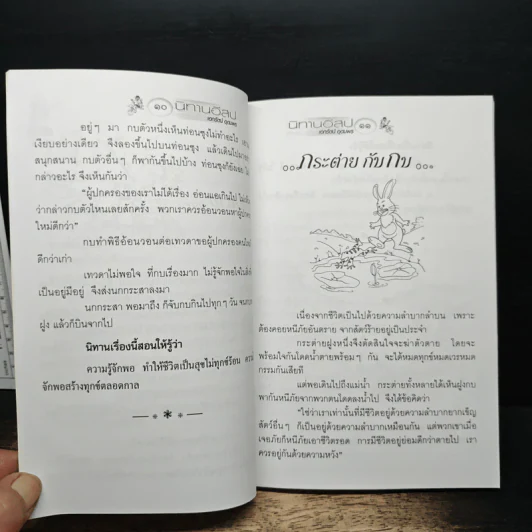 ๑๐ นิทานอีสป
เอกรัตน์ อุดมพร
อยู่ๆ มา กบตัวหนึ่งเห็นท่อนซุงไม่ทำอะไร
เงียบอย่างเดียว จึงลองขึ้นไปบนท่อนซุง แล้วเดินไป
สนุกสนาน กบตัวอื่นๆ ก็พากันขึ้นไปบ้าง ท่อนซุงก็ยัง
กล่าวอะไร จึงเห็นกันว่า
"ผู้ปกครองของเราไม่ได้เรื่อง อ่อนแอเกินไป
ว่ากล่าวกบตัวไหนเลยสักครั้ง พวกเราควรอ้อนวอนหาผู้ปกค
ใหม่ดีกว่า"
กบทำพิธีอ้อนวอนต่อเทวดาขอผู้ปกครองคนใหม่
ดีกว่าเก่า
เทวดาไม่พอใจ ที่กบเรื่องมาก ไม่รู้จักพอใจใน
เป็นอยู่มีอยู่ จึงส่งนกกระสาลงมา
นกกระสา พอมาถึง ก็จับกบกินไปทุกๆ วัน จน
ฝูง แล้วก็บินจากไป
นิทานเรื่องนี้สอนให้รู้ว่า
ความรู้จักพอ ทำให้ชีวิตเป็นสุขไม่ทุกข์ร้อน
จักพอสร้างทุกข์ตลอดกาล
นิทานอีสป ๑๑
เอกรัตน์ อุดมพร
กระต่าย กับกบ
เนื่องจากชีวิตเป็นไปด้วยความลำบากลำบน เพราะ
ต้องคอยหนีภัยอันตราย จากสัตว์ร้ายอยู่เป็นประจำ
กระต่ายฝูงหนึ่งจึงตัดสินใจจะฆ่าตัวตาย โดยจะ
พร้อมใจกันโดดน้ำตายพร้อมๆ กัน จะได้หมดทุกข์หมดเวรหมด
กรรมกันเสียที
แต่พอเดินไปถึงแม่น้ำ กระต่ายทั้งหลายได้เห็นฝูงกบ
พากันหนีภัยจากพวกตนโดดลงน้ำไป จึงได้ข้อคิดว่า
"ใช่ว่าเราเท่านั้นที่มีชีวิตอยู่ด้วยความลำบากยากเข็ญ
สัตว์อื่นๆ ก็เป็นอยู่ด้วยความลำบากเหมือนกัน แต่พวกเขาเมื่อ
เจอภัยก็หนีภัยเอาชีวิตรอด การมีชีวิตอยู่ย่อมดีกว่าตายไป เรา
ควรอยู่กันด้วยความหวัง"